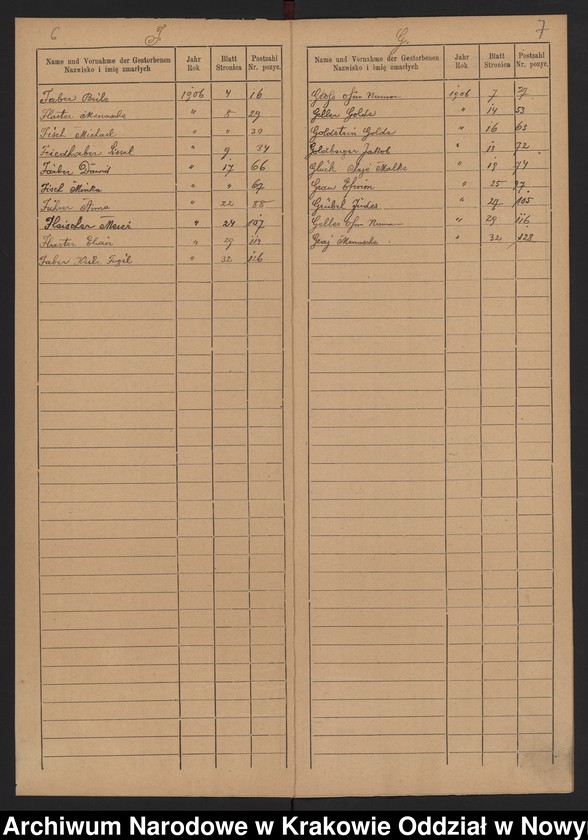 6
F.
Name und Vorname der Gestorbenen
Nazwisko i imię zmarłych
Jahr
Rok
Blatt
Stronica
Postzahl
Nr. pozyc.
Faber Beile 1906 4 16
Flaster Menasche " 8 29
Fisch Michael " " 30
Friedhaber " 9 34
Färber Dawid " 17 66
Fisch Minka " " 67
Führer Anna " 22 88
Fleischer Meier " 24 107
" 29 119
Faber Feigil " 32 126
7
G.
Name und Vorname der Gestorbenen
Nazwisko i imię zmarłych
Jahr
Rok
Blatt
Stronica
Postzahl
Nr. pozyc.
ohne Namen 1906 7 27
Geller Golde " 14 53
Goldstein Golde " 16 63
Goldberger Jakob " 18 72
Glück Malke " 19 74
Grau Efroim " 25 97
Grübel " 27 105
Geller ohne Namen " 29 116
Menasche " 32 128
Archiwum Narodowe w Krakowie Oddział w Nowy